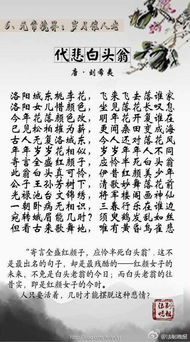 代悲白头翁
唐·刘希夷
洛阳城东桃李花，飞来飞去落谁家
洛阳女儿惜颜色，
今年花落颜色改，明年花开复谁在
已见松柏摧为薪，更闻桑田变成海
古人无复洛城东，今人还对落花风
年年岁岁花相似，岁岁年年人不同
寄言全盛红颜子，应怜半死白头翁
此翁白头真可怜，伊昔红颜美少年
公子王孙芳树下，清歌妙舞落花前
光禄池台 将军楼阁画神仙
一朝卧病无相识，三春行乐在谁边
宛转蛾眉能几时？须臾鹤发乱如丝
但看古来歌舞地，黄昏鸟雀悲
“寄言全盛红颜子，应怜半死白头翁”，这
是最出名的句子，却是最残酷的——红颜女子的
未来，不免是白头老翁的今日；而白头老翁的往
昔实，即是红颜女子的今时。
人只要活着，几时才能摆脱这种悲情？
法制晚报
@法制晚报